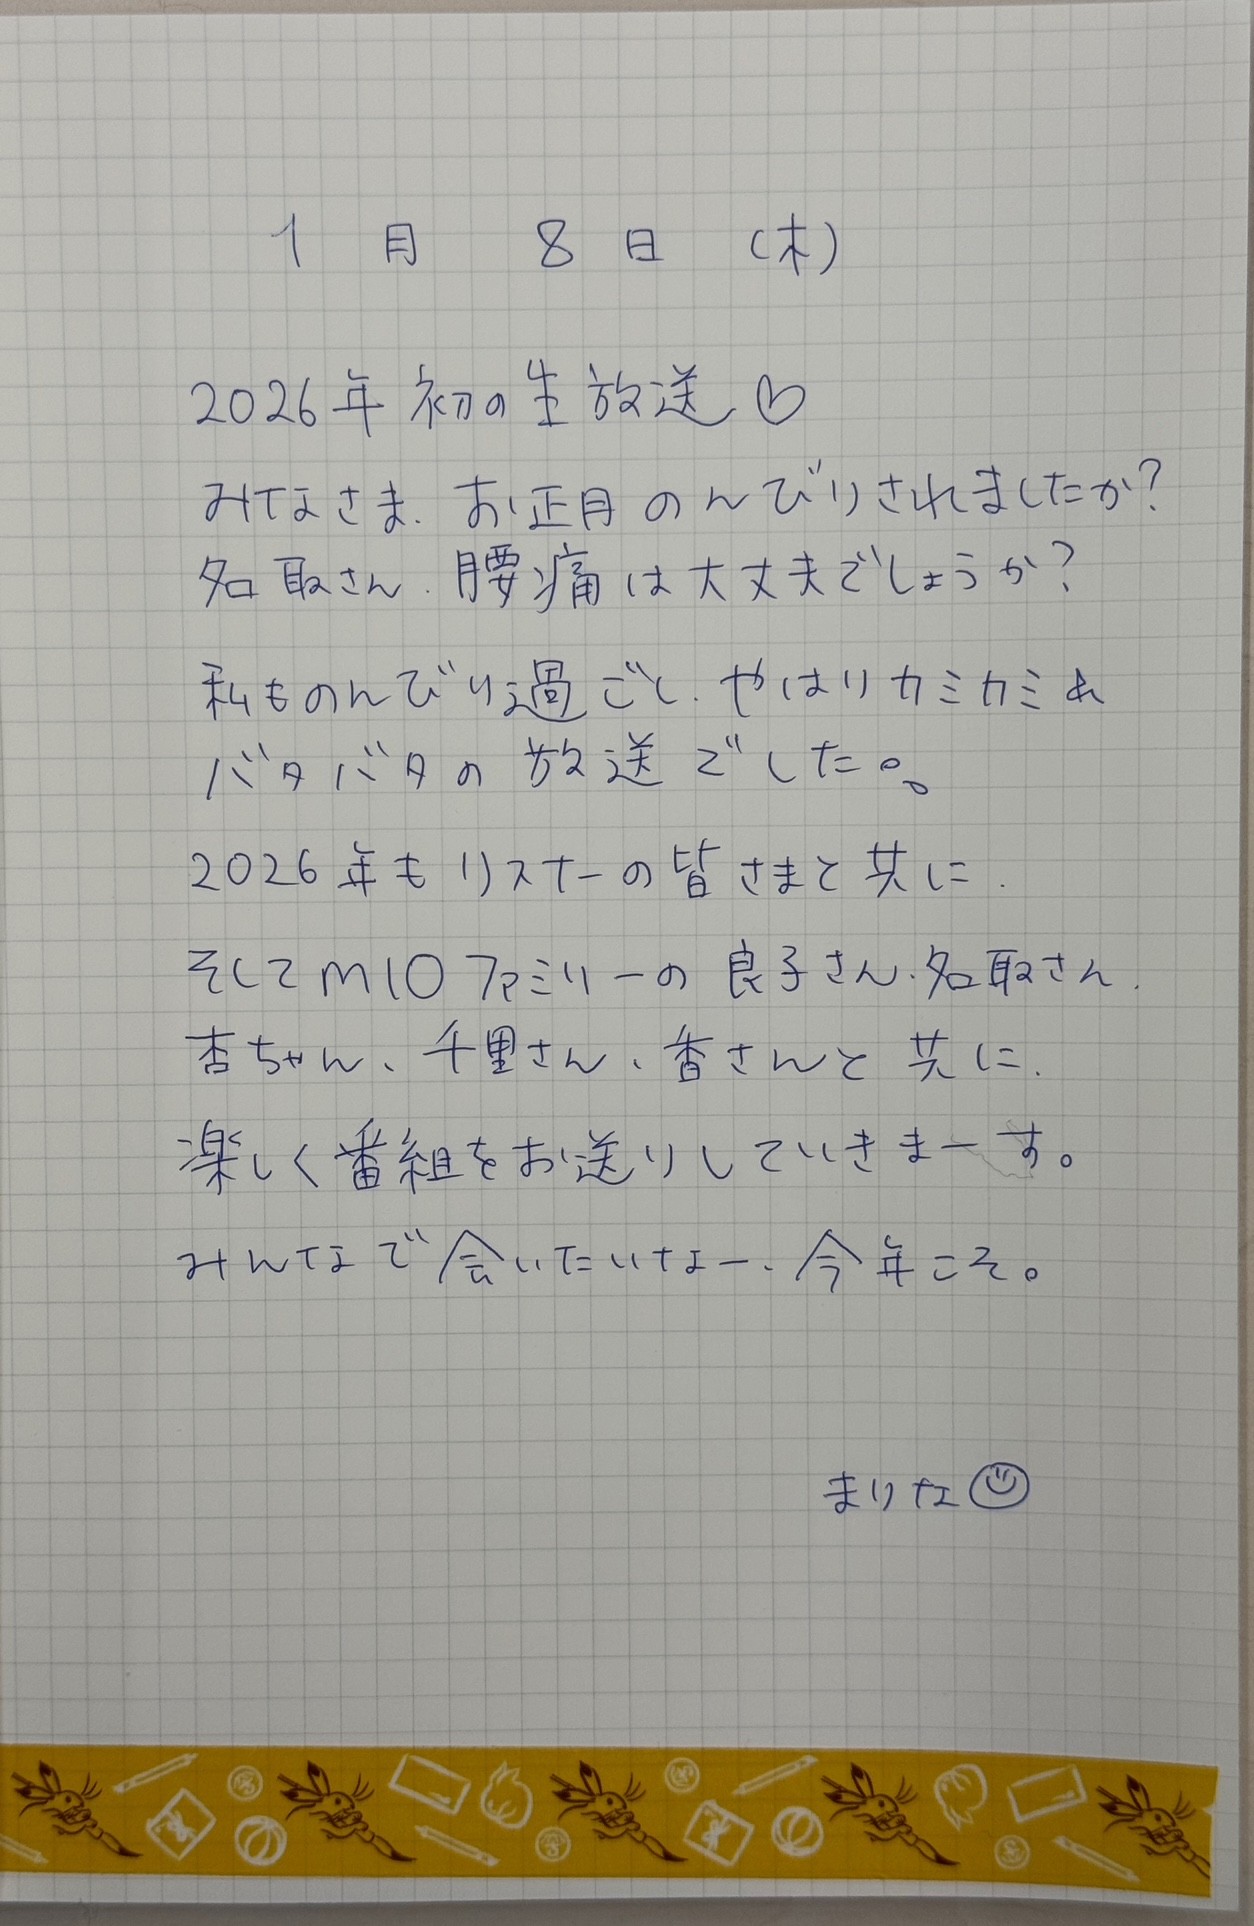 1月 8日 (木)
2026年初の生放送♡
みなさま、お正月のんびりされましたか?
名取さん、腰痛は大丈夫でしょうか?
私ものんびり過ごし、やはりカミカミ&
バタバタの放送でした。。
2026年もリスナーの皆さまと共に、
そしてM10ファミリーの良子さん、名取さん、
杏ちゃん、千里さん、香さんと共に、
楽しく番組をお送りしていきまーす。
みんなで会いたいなー、今年こそ。
まりな☺